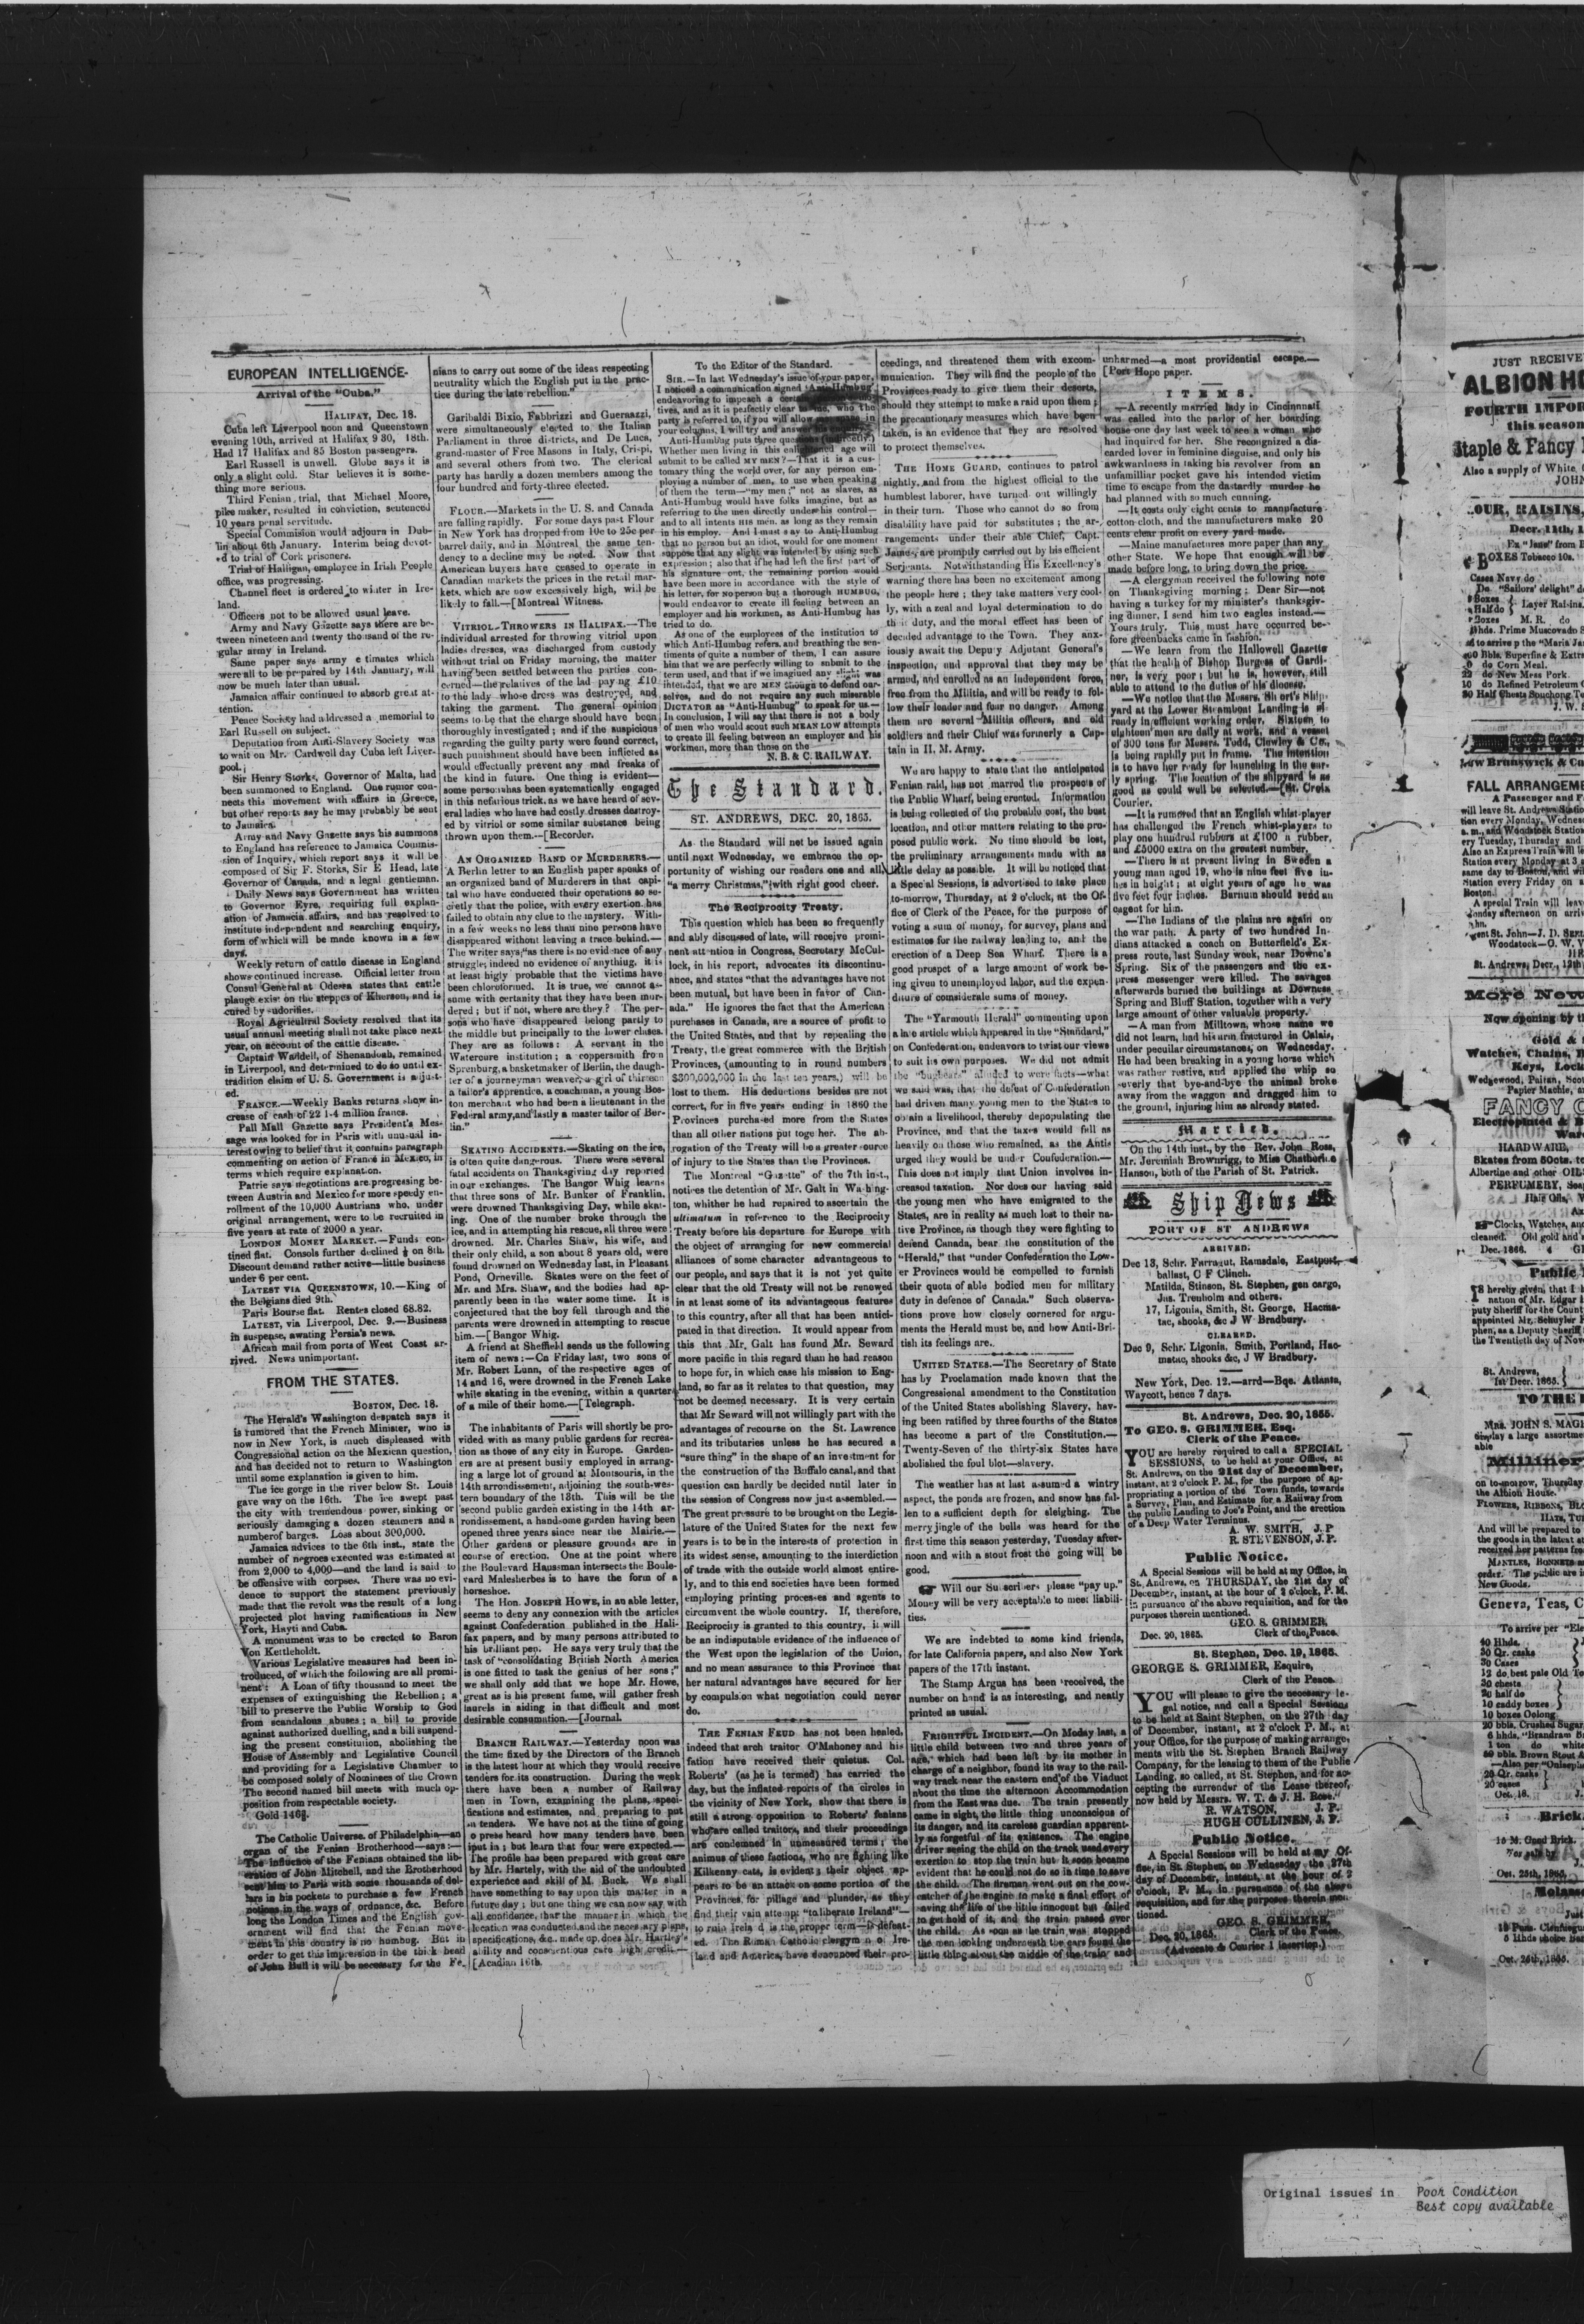 EUROPEAN INTELLIGENCE.
Arrival of the "Cuba."
HALIFAX, Dec. 18.
Cuba left Liverpool noon and Queenstown
evening 10th, arrived at Halifax 9 30, 18th.
Had 17 Halifax and 85 Boston passengers.
Earl Russell is unwell. Globe says it is
only a slight cold. Star believes it is some-
thing more serious.
Third Fenian trial, that Michael Moore,
pike maker, resulted in conviction, sentenced
10 years penal servitude.
Special Commision would adjourn in Dub-
lin about 6th January. Interim being devot-
ed to trial of Cork prisoners.
Trial of Halligan, employee in Irish People
office, was progressing.
Channel fleet is ordered to winter in Ire-
land.
Officers not to be allowed usual leave.
Army and Navy Gazette says there are be-
tween nineteen and twenty thousand of the re-
gular army in Ireland.
Same paper says army estimates which
were all to be prepared by 14th January, will
now be much later than usual.
Jamaica affair continued to absorb great at-
tention.
Peace Society had addressed a memorial to
Earl Russell on subject.
Deputation from Anti-Slavery Society was
to wait on Mr. Cardwell day Cuba left Liver-
pool.
Sir Henry Storks, Governor of Malta, had
been summoned to England. One rumor con-
nects this movement with affairs in Greece,
but other reports say he may probably be sent
to Jamaica.
Army and Navy Gazette says his summons
to England has reference to Jamaica Commis-
sion of Inquiry, which report says it will be
composed of Sir F. Storks, Sir E Head, late
Governor of Canada, and a legal gentleman.
Daily News says Government has written
to Governor Eyre, requiring full explan-
ation of Jamacia affairs, and has resolved to
institute independent and searching enquiry,
form of which will be made known in a few
days.
Weekly return of cattle disease in England
shows continued increase. Official letter from
Consul General at Odessa states that cattle
plauge exist on the steppes of Kherson, and is
cured by sudorifics.
Royal Agricultral Society resolved that its
usual annual meeting shall not take place next
year, on account of the cattle disease.
Captain Waddell, of Shenandoah, remained
in Liverpool, and determined to do so until ex-
tradition claim of U. S. Government is adjust-
ed.
FRANCE.—Weekly Banks returns show in-
crease of cash of 22 1-4 million francs.
Pall Mall Gazette says President's Mes-
sage was looked for in Paris with unusual in-
terest owing to belief that it contains paragraph
commenting on action of France in Mexico, in
terms which require explanation.
Patrie says negotiations are progressing be-
tween Austria and Mexico for more speedy en-
rollment of the 10,000 Austrians who, under
original arrangement, were to be recruited in
five years at rate of 2000 a year.
LONDON MONEY MARKET.—Funds con-
tined flat. Consols further declined ⅛ on 8th.
Discount demand rather active—little business
under 6 per cent.
LATEST VIA QUEENSTOWN, 10.—King of
the Belgians died 9th.
Paris Bourse flat. Rentes closed 68.82.
LATEST, via Liverpool, Dec. 9.—Business
in suspense, awating Persia's news.
African mail from ports of West Coast ar-
rived. News unimportant.
FROM THE STATES.
BOSTON, Dec. 18.
The Herald's Washington despatch says it
is rumored that the French Minister, who is
now in New York, is much displeased with
Congressional action on the Mexican question,
and has decided not to return to Washington
until some explanation is given to him.
The ice gorge in the river below St. Louis
gave way on the 16th. The ice swept past
the city with tremendous power, sinking or
seriously damaging a dozen steamers and a
number of barges. Loss about 300,000.
Jamaica advices to the 6th inst., state the
number of negroes executed was estimated at
from 2,000 to 4,000—and the land is said to
be offensive with corpses. There was no evi-
dence to support the statement previously
made that the revolt was the result of a long
projected plot having ramifications in New
York, Hayti and Cuba.
A monument was to be erected to Baron
Von Kettleholdt.
Various Legislative measures had been in-
troduced, of which the following are all promi-
nent: A Loan of fifty thousand to meet the
expenses of extinguishing the Rebellion; a
bill to preserve the Public Worship to God
from scandalous abuses; a bill to provide
against authorized duelling, and a bill suspend-
ing the present constitution, abolishing the
House of Assembly and Legislative Council
and providing for a Legislative Chamber to
be composed solely of Nominees of the Crown
The second named bill meets with much op-
position from respectable society.
Gold 146⅜.
The Catholic Universe, of Philadelphia—an
organ of the Fenian Brotherhood—says:—
The influence of the Fenians obtained the lib-
eration of John Mitchell, and the Brotherhood
sent him to Paris with some thousands of dol-
lars in his pockets to purchase a few French
notions in the ways of ordnance, &c. Before
long the London Times and the English gov-
ernment will find that the Fenian move-
ment in this country is no humbug. But in
order to get this impression in the thick head
of John Bull it will be necessary for the Fe-
nians to carry out some of the ideas respecting
neutrality which the English put in the prac-
tice during the late rebellion."
Garibaldi Bixio, Fabbrizzi and Guerrazzi,
were simultaneously elected to the Italian
Parliament in three districts, and De Luca,
grand-master of Free Masons in Italy, Crispi,
and several others from two. The clerical
party has hardly a dozen members among the
four hundred and forty-three elected.
FLOUR.—Markets in the U. S. and Canada
are falling rapidly. For some days past Flour
in New York has dropped from 10c to 25c per
barrel daily, and in Montreal, the same ten-
dency to a decline may be noted. Now that
American buyers have ceased to operate in
Canadian markets the prices in the retail mar-
kets, which are now excessively high, will be
likely to fall.—[Montreal Witness.
VITRIOL-THROWERS IN HALIFAX.—The
individual arrested for throwing vitriol upon
ladies dresses, was discharged from custody
without trial on Friday morning, the matter
having been settled between the parties con-
cerned—the relatives of the lad paying £10
to the lady whose dress was destroyed, and
taking the garment. The general opinion
seems to be that the charge should have been
thoroughly investigated; and if the suspicious
regarding the guilty party were found correct,
such punishment should have been inflicted as
would effectually prevent any mad freaks of
the kind in future. One thing is evident—
some person has been systematically engaged
in this nefarious trick, as we have heard of sev-
eral ladies who have had costly dresses destroy-
ed by vitriol or some similar substance being
thrown upon them.—[Recorder.
AN ORGANIZED BAND OF MURDERERS.—
A Berlin letter to an English paper speaks of
an organized band of Murderers in that capi-
tal who have conducted their operations so se-
cretly that the police, with every exertion has
failed to obtain any clue to the mystery. With-
in a few weeks no less than nine persons have
disappeared without leaving a trace behind.—
The writer says, "as there is no evidence of any
struggle, indeed no evidence of anything, it is
at least higly probable that the victims have
been chloroformed. It is true, we cannot as-
sume with certanity that they have been mur-
dered; but if not, where are they? The per-
sons who have disappeared belong partly to
the middle but principally to the lower classes.
They are as follows: A servant in the
Watercure institution; a coppersmith from
Sprenburg, a basketmaker of Berlin, the daugh-
ter of a journeyman weaver, a girl of thirteen
a tailor's apprentice, a coachman, a young Bos-
ton merchant who had been a lieutenant in the
Federal army, and lastly a master tailor of Ber-
lin."
SKATING ACCIDENTS.—Skating on the ice,
is often quite dangerous. There were several
fatal accidents on Thanksgiving day reported
in our exchanges. The Bangor Whig learns
that three sons of Mr. Bunker of Franklin,
were drowned Thanksgiving Day, while skat-
ing. One of the number broke through the
ice, and in attempting his rescue, all three were
drowned. Mr. Charles Shaw, his wife, and
their only child, a son about 8 years old, were
found drowned on Wednesday last, in Pleasant
Pond, Orneville. Skates were on the feet of
Mr. and Mrs. Shaw, and the bodies had ap-
parently been in the water some time. It is
conjectured that the boy fell through and the
parents were drowned in attempting to rescue
him.—[Bangor Whig.
A friend at Sheffield sends us the following
item of news:—On Friday last, two sons of
Mr. Robert Lunn, of the respective ages of
14 and 16, were drowned in the French Lake
while skating in the evening, within a quarter
of a mile of their home.—[Telegraph.
The inhabitants of Paris will shortly be pro-
vided with as many public gardens for recrea-
tion as those of any city in Europe. Garden-
ers are at present busily employed in arrang-
ing a large lot of ground at Montsouris, in the
14th arrondissement, adjoining the south-wes-
tern boundary of the 13th. This will be the
second public garden existing in the 14th ar-
rondissement, a handsome garden having been
opened three years since near the Mairie.—
Other gardens or pleasure grounds are in
course of erection. One at the point where
the Boulevard Haussman intersects the Boule-
vard Malesherbes is to have the form of a
horseshoe.
The Hon. JOSEPH HOWE, in an able letter,
seems to deny any connexion with the articles
against Confederation published in the Hali-
fax papers, and by many persons attributed to
his brilliant pen. He says very truly that the
task of "consolidating British North America
is one fitted to task the genius of her sons;"
we shall only add that we hope Mr. Howe,
great as is his present fame, will gather fresh
laurels in aiding in that difficult and most
desirable consumation.—[Journal.
BRANCH RAILWAY.—Yesterday noon was
the time fixed by the Directors of the Branch
is the latest hour at which they would receive
tenders for its construction. During the week
there have been a number of Railway
men in Town, examining the plans, speci-
fications and estimates, and preparing to put
in tenders. We have not at the time of going
o press heard how many tenders have been
put in; but learn that four were expected.—
The profile has been prepared with great care
by Mr. Hartely, with the aid of the undoubted
experience and skill of M. Buck. We shall
have something to say upon this matter in a
future day; but one thing we can now say with
all confidence, that the manner in which the
location was conducted and the necessary plans,
specifications, &c. made up, does Mr. Hartley's
ability and conscientious care high credit.—
[Acadian 16th.
To the Editor of the Standard.
SIR.—In last Wednesday's issue of your paper,
I noticed a communication signed "Anti-Humbug"
endeavoring to impeach a certain
tives, and as it is peafectly clear to me, who the
party is referred to, if you will allow me space in
your columns, I will try and answer his
Anti-Humbug puts three questions (indirectly.)
Whether men living in this enlightened age will
submit to be called MY MEN?—That it is a cus-
tomary thing the world over, for any person em-
ploying a number of men, to use when speaking
of them the term—"my men;" not as slaves, as
Anti-Humbug would have folks imagine, but as
referring to the men directly under his control—
and to all intents HIS men, as long as they remain
in his employ. And I must say to Anti-Humbug
that no person but an idiot, would for one moment
suppose that any slight was intended by using such
expression; also that if he had left the first part of
his signature out, the remaining portion would
have been more in accordance with the style of
his letter, for no person but a thorough HUMBUG,
would endeavor to create ill feeling between an
employer and his workmen, as Anti-Humbug has
tried to do.
As one of the employees of the institution to
which Anti-Humbug refers, and breathing the sen-
timents of quite a number of them, I can assure
him that we are perfectly willing to submit to the
term used, and that if we imagined any slight was
intended, that we are MEN enough to defend our-
selves, and do not require any such miserable
DICTATOR as "Anti-Humbug" to speak for us.—
In conclusion, I will say that there is not a body
of men who would scout such MEAN LOW attempts
to create ill feeling between an employer and his
workmen, more than those on the
N. B. & C. RAILWAY.
The Standard.
ST. ANDREWS, DEC. 20, 1865.
As the Standard will not be issued again
until next Wednesday, we embrace the op-
portunity of wishing our readers one and all,
"a merry Christmas," with right good cheer.
The Reciprocity Treaty.
This question which has been so frequently
and ably discussed of late, will receive promi-
nent attention in Congress, Secretary McCul-
lock, in his report, advocates its discontinu-
ance, and states "that the advantages have not
been mutual, but have been in favor of Can-
ada." He ignores the fact that the American
purchases in Canada, are a source of profit to
the United States, and that by repealing the
Treaty, the great commerce with the British
Provinces, (amounting to in round numbers
$300,000,000 in the last ten years,) will be
lost to them. His deductions besides are not
correct, for in five years ending in 1860 the
Provinces purchased more from the States
than all other nations put together. The ab-
rogation of the Treaty will be a greater source
of injury to the States than the Provinces.
The Montreal "Gazette" of the 7th inst.,
notices the detention of Mr. Galt in Washing-
ton, whither he had repaired to ascertain the
ultimatum in reference to the Reciprocity
Treaty before his departure for Europe with
the object of arranging for new commercial
alliances of some character advantageous to
our people, and says that it is not yet quite
clear that the old Treaty will not be renewed
in at least some of its advantageous features
to this country, after all that has been antici-
pated in that direction. It would appear from
this that Mr. Galt has found Mr. Seward
more pacific in this regard than he had reason
to hope for, in which case his mission to Eng-
land, so far as it relates to that question, may
not be deemed necessary. It is very certain
that Mr Seward will not willingly part with the
advantages of recourse on the St. Lawrence
and its tributaries unless he has secured a
"sure thing" in the shape of an investment for
the construction of the Buffalo canal, and that
question can hardly be decided until later in
the session of Congress now just assembled.—
The great pressure to be brought on the Legis-
lature of the United States for the next few
years is to be in the interests of protection in
its widest sense, amounting to the interdiction
of trade with the outside world almost entire-
ly, and to this end societies have been formed
employing printing processes and agents to
circumvent the whole country. If, therefore,
Reciprocity is granted to this country, it will
be an indisputable evidence of the influence of
the West upon the legislation of the Union,
and no mean assurance to this Province that
her natural advantages have secured for her
by compulsion what negotiation could never
do.
THE FENIAN FEUD has not been healed,
indeed that arch traitor O'Mahoney and his
fation have received their quietus. Col.
Roberts' (as he is termed) has carried the
day, but the inflated reports of the circles in
the vicinity of New York, show that there is
still a strong opposition to Roberts' fenians
who are called traitors, and their proceedings
are condemned in unmeasured terms; the
animus of these factions, who are fighting like
Kilkenny cats, is evident; their object ap-
pears to be an attack on some portion of the
Provinces, for pillage and plunder, as they
find their vain attempt "to liberate Ireland"—
to ruin Ireland is the proper term—is defeat-
ed. The Roman Catholic clergymen of Ire-
land and America, have denounced their pro-
ceedings, and threatened them with excom-
munication. They will find the people of the
Provinces ready to give them their deserts,
should they attempt to make a raid upon them;
the precautionary measures which have been
taken, is an evidence that they are resolved
to protect themselves.
THE HOME GUARD, continues to patrol
nightly, and from the highest official to the
humblest laborer, have turned out willingly
in their turn. Those who cannot do so from
disability have paid for substitutes; the ar-
rangements under their able Chief, Capt.
James, are promptly carried out by his efficient
Serjeants. Notwithstanding His Excellency's
warning there has been no excitement among
the people here; they take matters very cool-
ly, with a zeal and loyal determination to do
their duty, and the moral effect has been of
decided advantage to the Town. They anx-
iously await the Deputy Adjutant General's
inspection, and approval that they may be
armed, and enrolled as an Independent force,
free from the Militia, and will be ready to fol-
low their leader and fear no danger. Among
them are several Militia officers, and old
soldiers and their Chief was formerly a Cap-
tain in H. M. Army.
We are happy to state that the anticipated
Fenian raid, has not marred the prospects of
the Public Wharf, being erected. Information
is being collected of the probable cost, the best
location, and other matters relating to the pro-
posed public work. No time should be lost,
the preliminary arrangements made with as
little delay as possible. It will be noticed that
a Special Sessions, is advertised to take place
to-morrow, Thursday, at 2 o'clock, at the Of-
fice of Clerk of the Peace, for the purpose of
voting a sum of money, for survey, plans and
estimates for the railway leading to, and the
erection of a Deep Sea Wharf. There is a
good prospct of a large amount of work be-
ing given to unemployed labor, and the expen-
diture of considerale sums of money.
The "Yarmouth Herald" commenting upon
a late article which appeared in the "Standard,"
on Confederation, endeavors to twist our views
to suit its own purposes. We did not admit
the "bugbears" alluded to were facts—what
we said was, that the defeat of Confederation
had driven many young men to the States to
obtain a livelihood, thereby depopulating the
Province, and that the taxes would fall as
heavily on those who remained, as the Antis
urged they would be under Confederation.—
This does not imply that Union involves in-
creased taxation. Nor does our having said
the young men who have emigrated to the
States, are in reality as much lost to their na-
tive Province, as though they were fighting to
defend Canada, bear the constitution of the
"Herald," that "under Confederation the Low-
er Provinces would be compelled to furnish
their quota of able bodied men for military
duty in defence of Canada." Such observa-
tions prove how closely cornered for argu-
ments the Herald must be, and how Anti-Bri-
tish its feelings are.
UNITED STATES.—The Secretary of State
has by Proclamation made known that the
Congressional amendment to the Constitution
of the United States abolishing Slavery, hav-
ing been ratified by three fourths of the States
has become a part of the Constitution.—
Twenty-Seven of the thirty-six States have
abolished the foul blot—slavery.
The weather has at last assumed a wintry
aspect, the ponds are frozen, and snow has fal-
len to a sufficient depth for sleighing. The
merry jingle of the bells was heard for the
first time this season yesterday, Tuesday after-
noon and with a stout frost the going will be
good.
Will our Suscribers please "pay up."
Money will be very acceptable to meet liabili-
ties.
We are indebted to some kind friends,
for late California papers, and also New York
papers of the 17th instant.
The Stamp Argus has been received, the
number on hand is as interesting, and neatly
printed as usual.
FRIGHTFUL INCIDENT.—On Moday last, a
little child between two and three years of
age, which had been left by its mother in
charge of a neighbor, found its way to the rail-
way track near the eastern end of the Viaduct
about the time the afternoon Accommodation
from the East was due. The train presently
came in sight, the little thing unconscious of
its danger, and its careless guardian apparent-
ly as forgetful of its existence. The engine
driver seeing the child on the track used every
exertion to stop the train but it soon became
evident that he could not do so in time to save
the child. The fireman went out on the cow-
catcher of the engine to make a final effort of
saving the life of the little innocent but failed
to get hold of it, and the train passed over
the child. As soon as the train was stopped
the men looking underneath the cars found the
little thing about the middle of the train and
unharmed—a most providential escape.—
[Port Hope paper.
ITEMS.
—A recently married lady in Cincinnnati
was called into the parlor of her boarding
house one day last week to see a woman who
had inquired for her. She recongnized a dis-
carded lover in feminine disguise, and only his
awkwanliness in taking his revolver from an
unfamilliar pocket gave his intended victim
time to escape from the dastardly murder he
had planned with so much cunning.
—It costs only eight cents to manufacture
cotton-cloth, and the manufacturers make 20
cents clear profit on every yard made.
—Maine manufactures more paper than any
other State. We hope That enough will be
made before long, to bring down the price.
—A clergyman received the following note
on Thanksgiving morning; Dear Sir—not
having a turkey for my minister's thanksgiv-
ing dinner, I send him two eagles instead.—
Yours truly, This must have occurred be-
fore greenbacks came in fashion.
—We learn from the Hallowell Gazette
that the health of Bishop Burgess of Gardi-
ner, is very poor; but he is, however, still
able to attend to the duties of his diocese.
—We notice that the Messrs. Short's Ship-
yard at the Lower Steamboat Landing is al
ready in efficient working order. Sixteen to
eighteen men are daily at work, and a vessel
of 300 tons for Messrs. Todd, Clewley & Co.,
is being rapidly put in frame. The intention
is to have her ready for launching in the ear-
ly spring. The location of the shipyard is as
good as could well be selected.—[St. Croix
Courier.
—It is rumored that an English whist-player
has challenged the French whist-players to
play one hundred rubbers at £100 a rubber,
and £5000 extra on the greatest number.
—There is at present living in Sweden a
young man aged 19, who is nine feet five in-
hes in height; at eight years of age he was
five feet four inches. Barnum should send an
eagent for him.
—The Indians of the plains are again on
the war path. A party of two hundred In-
dians attacked a coach on Butterfield's Ex-
press route, last Sunday week, near Downe's
Spring. Six of the passengers and the ex-
press messenger were killed. The savages
afterwards burned the buildings at Downess
Spring and Bluff Station, together with a very
large amount of other valuable property.
—A man from Milltown, whose name we
did not learn, had his arm fractured in Calais,
under peculiar circumstances, on Wednesday.
He had been breaking in a young horse which
was rather restive, and applied the whip so
severly that bye-and-bye the animal broke
away from the waggon and dragged him to
the ground, injuring him as already stated.
Married.
On the 14th inst., by the Rev. John Ross,
Mr. Jeremiah Brownrigg, to Miss Chatherine
Hanson, both of the Parish of St. Patrick.
Ship News
PORT OF ST ANDREWS
ARRIVED.
Dec 13, Schr. Farragut, Ramsdale, Eastport,
ballast, C F Clinch.
Matilda, Stinson, St. Stephen, gen cargo,
Jas. Treaholm and others.
17, Ligonia, Smith, St. George, Hacma-
tac, shooks, &c J W Bradbury.
CLEARED.
Dec 9, Schr. Ligonia, Smith, Portland, Hac-
matac, shooks &c, J W Bradbury.
New York, Dec. 12.—arrd—Bqe. Atlanta,
Waycott, hence 7 days.
St. Andrews, Dec. 20, 1865.
To GEO. S. GRIMMER, Esq.
Clerk of the Peace.
YOU are hereby required to call a SPECIAL
SESSIONS, to be held at your Office, at
St. Andrews, on the 21st day of December,
instant, at 2 o'clock P. M., for the purpose of ap-
propriating a portion of the Town funds, towards
a Survey, Plan, and Estimate for a Railway from
the public Landing to Joe's Point, and the erection
of a Deep Water Terminus.
A. W. SMITH, J. P
R. STEVENSON, J. P.
Public Notice.
A Special Sessions will be held at my Office, in
St. Andrews, on THURSDAY, the 21st day of
December, instant, at the hour of 2 o'clock, P. M.
in pursuance of the above requisition, and for the
purposes therein mentioned.
GEO. S. GRIMMER,
Dec. 20, 1865. Clerk of the Peace.
St. Stephen, Dec. 19, 1865.
GEORGE S. GRIMMER, Esquire,
Clerk of the Peace.
YOU will please to give the necessary le-
gal notice, and call a Special Sessions
to be held at Saint Stephen, on the 27th day
of December, instant, at 2 o'clock P. M., at
your Office, for the purpose of making arrange-
ments with the St. Stephen Branch Railway
Company, for the leasing to them of the Public
Landing, so called, at St. Stephen, and for ac-
cepting the surrender of the Lease thereof,
now held by Messrs. W. T. & J. H. Rose."
R. WATSON, J. P.
HUGH CULLINEN, J. P.
Public Notice.
A Special Sessions will be held at my Of-
fice, in St. Stephen, on Wednesday the 27th
day of December, instant, at the hour of 2
o'clock, P. M., in pursuance of the above
requisition, and for the purposes therein men-
tioned.
GEO. S. GRIMMER,
Dec. 20, 1865. Clerk of the Peace.
(Advocate & Courier 1 insertion.)
JUST RECEIVE
ALBION H
FOURTH IMPOR
this season
Staple & Fancy
Also a supply of White,
JOHN
OUR, RAISINS,
Decr. 11th, 1
BOXES Tobacco 10s.
Cases Navy do
Do "Sailors' delight" d
Boxes
Half do } Layer Raisins
Boxes M. R. do
hhds. Prime Muscovado S
to arrive p the "Maria Ja
Bbls. Superfine & Extr
do Corn Meal.
22 do New Mess Pork.
10 do Refined Petroleum
20 Half Chests Souchong Te
J. W.
New Brunswick & Ca
FALL ARRANGEME
A Passenger and F
will leave St. Andrews Statio
tion every Monday, Wednes
a. m., and Woodstock Station
ery Tuesday, Thursday and
Also an Express Train will le
Station every Monday at 3
same day to Boston, and wi
Station every Friday on a
Boston
A special Train will leav
Monday afternoon on arri
gent St. John—J. D.
Woodstock—O. W. V
St. Andrews, Decr., 12th
More New
Now opening by t
Gold &
Watches, Chains,
Keys, Lock
Wedgewood, Parian, Sco
Papier Mache, a
FANCY
Electroplated & B
War
HARDWARE,
Skates from 80cts. to
Albertine and other OIL
PERFUMERY, Soa
Hair Oils,
Clocks, Watches, and
cleaned. Old gold and
Dec. 1865. 4
Public
IS hereby given, that I h
nation of Mr. Edgar
puty Sheriff for the Count
appointed Mr. Schuyler
phen, as a Deputy Sheriff
the Twentieth day of Nov
St. Andrews,
1st Decr. 1865. }
TO THE
MRS. JOHN S. MAG
display a large assortme
able
Millinery
on to-morrow, Thursday
the Albion House.
FLOWERS, RIBBONS,
HATS,
And will be prepared to
the goods in the latest st
received her patterns fro
MANTLES, BONNETS
order. The public are i
New Goods.
Geneva, Teas, C
To arrive per "Ele
40 Hhds.
30 Qr. casks
30 Cases
12 do. best pale Old To
30 chests
20 half do
10 caddy boxes }
10 boxes Oolong
20 bbls. Crushed Sugar
6 hhds. "Brandram B
1 ton do white
50 bbls. Brown Stout
—Also per
20 Qr. casks
20 cases }
Oct. 18.
Brick.
10 M. Good Brick.
For sale by
Oct. 25th, 1865.
Molasse
Just
15 Puns. Cienfuegu
5 Hhds choice
Oct. 25th, 1865.
Original issues in Poor Condition
Best copy available